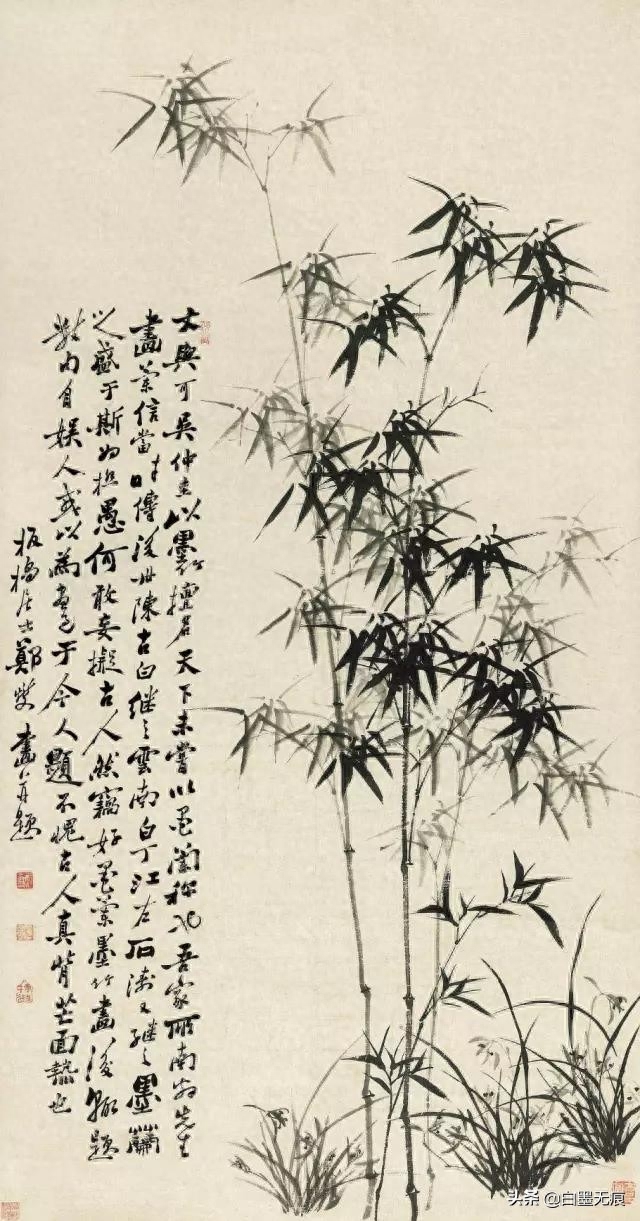 文與可吳仲圭以墨竹擅名天下未嘗以墨蘭稱也吾家所南翁先生
畫蘭信當時傳後世陳古白繼之雲南白丁江右石濤又繼之墨蘭
之盛于斯為極愚何敢妄擬古人然竊好墨蘭墨竹畫後輒題
數句自娛人或以為畫意于今人題不愧古人真背芒面熱也
板橋居士鄭燮畫并題
头条 @白墨无痕